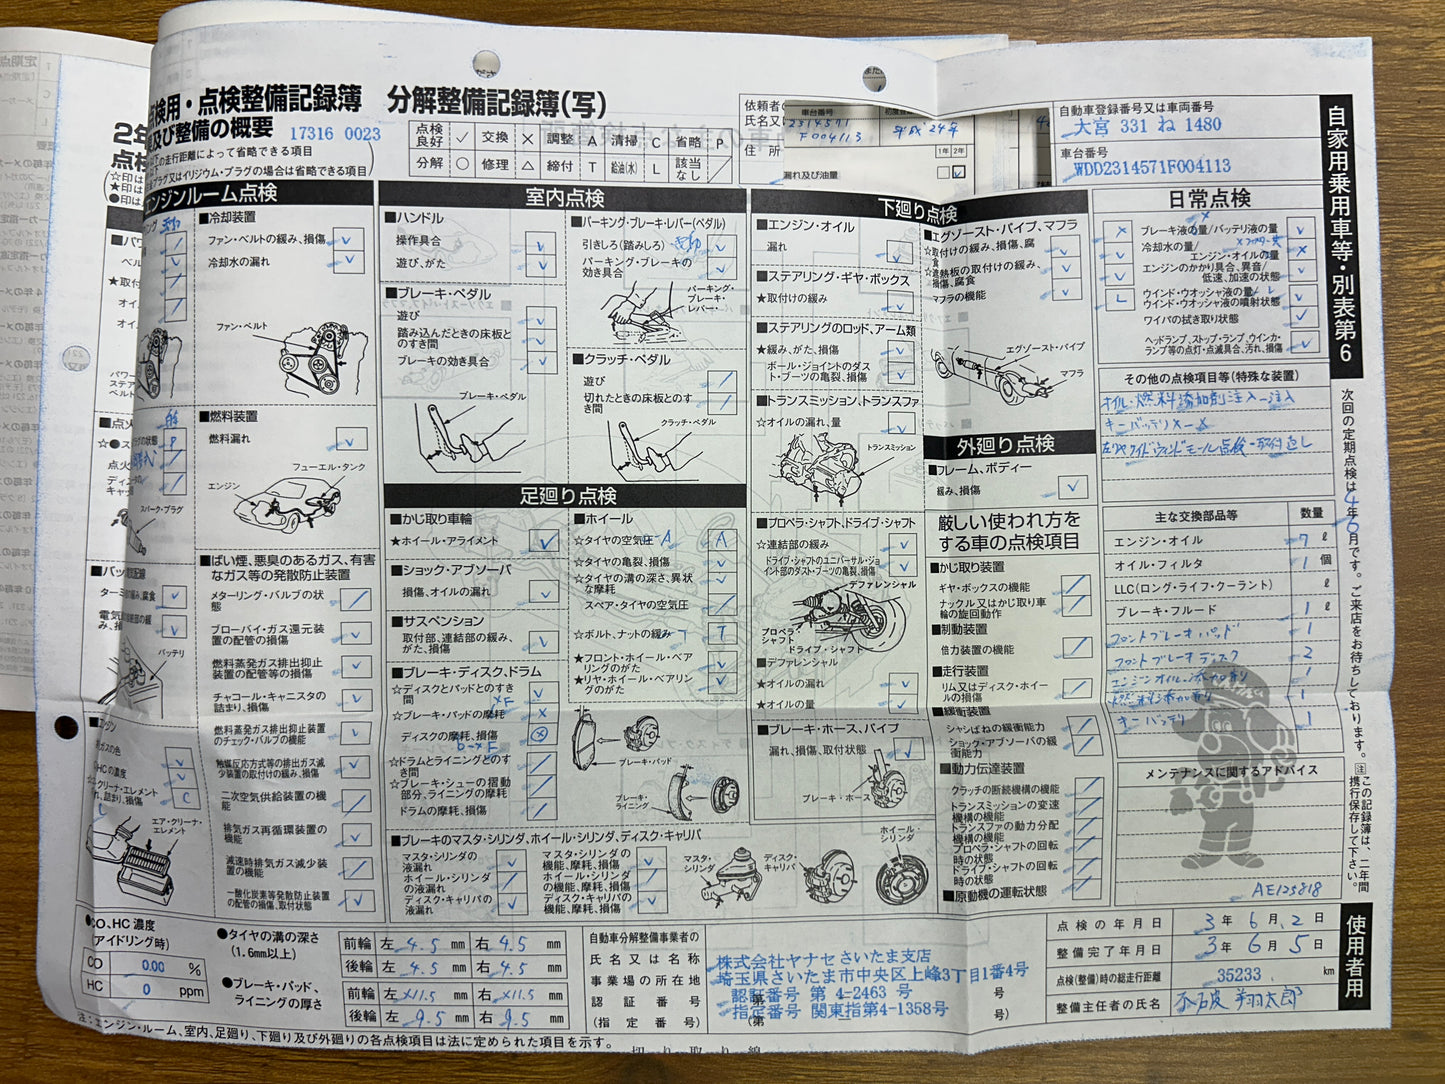 点検用・点検整備記録簿 分解整備記録簿(写)
及び整備の概要 17316 0023
の走行距離によって省略できる項目
プラグ又はイリジウム・プラグの場合は省略できる項目
点検良好 ✓ 交換 × 調整 A 清掃 C 省略 P
分解 ○ 修理 △ 締付 T 給油(水) L 該当なし /
氏名又は
住所
車台番号
2314571
F004113
平成24年
1年 2年
漏れ及び油量
自動車登録番号又は車両番号
大宮 331 ね 1480
車台番号
WDD2314571F004113
自家用乗用車等・別表第6
エンジンルーム点検
■冷却装置
ファン・ベルトの緩み、損傷
冷却水の漏れ
ファン・ベルト
■燃料装置
燃料漏れ
フューエル・タンク
エンジン
スパーク・プラグ
■ばい煙、悪臭のあるガス、有害なガス等の発散防止装置
メターリング・バルブの状態
ブローバイ・ガス還元装置の配管の損傷
燃料蒸発ガス排出抑止装置の配管等の損傷
チャコール・キャニスタの詰まり、損傷
燃料蒸発ガス排出抑止装置のチェック・バルブの機能
触媒反応方式等の排出ガス減少装置の取付けの緩み、損傷
二次空気供給装置の機能
排気ガス再循環装置の機能
減速時排気ガス減少装置の機能
一酸化炭素等発散防止装置の配管の損傷、取付状態
バッテリ
エア・クリーナ・エレメント
室内点検
■ハンドル
操作具合
遊び、がた
■ブレーキ・ペダル
遊び
踏み込んだときの床板とのすき間
ブレーキの効き具合
ブレーキ・ペダル
■パーキング・ブレーキ・レバー(ペダル)
引きしろ(踏みしろ)
パーキング・ブレーキの効き具合
パーキング・ブレーキ・レバー
■クラッチ・ペダル
遊び
切れたときの床板とのすき間
クラッチ・ペダル
足廻り点検
■かじ取り車輪
★ホイール・アライメント
■ショック・アブソーバ
損傷、オイルの漏れ
■サスペンション
取付部、連結部の緩み、がた、損傷
■ブレーキ・ディスク、ドラム
☆ディスクとパッドとのすき間
☆ブレーキ・パッドの摩耗
ディスクの摩耗、損傷
☆ドラムとライニングとのすき間
☆ブレーキ・シューの摺動部分、ライニングの摩耗
ドラムの摩耗、損傷
■ホイール
☆タイヤの空気圧 A
☆タイヤの亀裂、損傷
☆タイヤの溝の深さ、異状な摩耗
スペア・タイヤの空気圧
☆ボルト、ナットの緩み T
★フロント・ホイール・ベアリングのがた
★リヤ・ホイール・ベアリングのがた
ブレーキ・パッド
ブレーキ・ライニング
■ブレーキのマスタ・シリンダ、ホイール・シリンダ、ディスク・キャリパ
マスタ・シリンダの液漏れ
ホイール・シリンダの液漏れ
ディスク・キャリパの液漏れ
マスタ・シリンダの機能、摩耗、損傷
ホイール・シリンダの機能、摩耗、損傷
ディスク・キャリパの機能、摩耗、損傷
マスタ・シリンダ
ディスク・キャリパ
ホイール・シリンダ
下廻り点検
■エンジン・オイル
漏れ
■ステアリング・ギヤ・ボックス
★取付けの緩み
■ステアリングのロッド、アーム類
★緩み、がた、損傷
ボール・ジョイントのダスト・ブーツの亀裂、損傷
■トランスミッション、トランスファ
☆オイルの漏れ、量
トランスミッション
■プロペラ・シャフト、ドライブ・シャフト
☆連結部の緩み
ドライブ・シャフトのユニバーサル・ジョイント部のダスト・ブーツの亀裂、損傷
デファレンシャル
プロペラ・シャフト
ドライブ・シャフト
■デファレンシャル
★オイルの漏れ
★オイルの量
■ブレーキ・ホース、パイプ
漏れ、損傷、取付状態
ブレーキ・ホース
■エグゾースト・パイプ、マフラ
☆取付けの緩み、損傷、腐食
☆遮熱板の取付けの緩み、損傷、腐食
マフラの機能
エグゾースト・パイプ
マフラ
外廻り点検
■フレーム、ボディー
緩み、損傷
厳しい使われ方をする車の点検項目
■かじ取り装置
ギヤ・ボックスの機能
ナックル又はかじ取り車輪の旋回動作
■制動装置
倍力装置の機能
■走行装置
リム又はディスク・ホイールの損傷
■緩衝装置
シャシばねの緩衝能力
ショック・アブソーバの緩衝能力
■動力伝達装置
クラッチの断続機構の機能
トランスミッションの変速機構の機能
トランスファの動力分配機構の機能
プロペラ・シャフトの回転時の状態
ドライブ・シャフトの回転時の状態
■原動機の運転状態
日常点検
ブレーキ液の量/バッテリ液の量
冷却水の量/エンジン・オイルの量
エンジンのかかり具合、異音/低速、加速の状態
ウインド・ウオッシャ液の量/ウインド・ウオッシャ液の噴射状態
ワイパの拭き取り状態
ヘッドランプ、ストップ・ランプ、ウインカ・ランプ等の点灯・点滅具合、汚れ、損傷
その他の点検項目等(特殊な装置)
オイル・燃料添加剤注入-注入
キーバッテリ×-×
主な交換部品等 数量
エンジン・オイル 7 ℓ
オイル・フィルタ 1 個
LLC(ロング・ライフ・クーラント) ℓ
ブレーキ・フルード 1 ℓ
フロントブレーキパッド 1
フロントブレーキディスク 2
エンジンオイル添加剤 1
燃料添加剤 1
キーバッテリ 1
メンテナンスに関するアドバイス
AE125818
次回の定期点検は4年6月です。ご来店をお待ちしております。
注 この記録簿は、二年間携行保存して下さい。
使用者用
●CO、HC濃度(アイドリング時)
CO 0.00 %
HC 0 ppm
●タイヤの溝の深さ(1.6mm以上)
前輪 左 4.5 mm 右 4.5 mm
後輪 左 4.5 mm 右 4.5 mm
●ブレーキ・パッド、ライニングの厚さ
前輪 左 ×11.5 mm 右 ×11.5 mm
後輪 左 9.5 mm 右 9.5 mm
自動車分解整備事業者の
氏名又は名称 株式会社ヤナセさいたま支店
事業場の所在地 埼玉県さいたま市中央区上峰3丁目1番4号
認証番号 認証番号 第 4-2463 号
(指定番号) 指定番号 関東指第4-1358号
点検の年月日 3年 6月 2日
整備完了年月日 3年 6月 5日
点検(整備)時の総走行距離 35233 km
整備主任者の氏名
注:エンジン・ルーム、室内、足廻り、下廻り及び外廻りの各点検項目は法に定められた項目を示す。
切り取り線